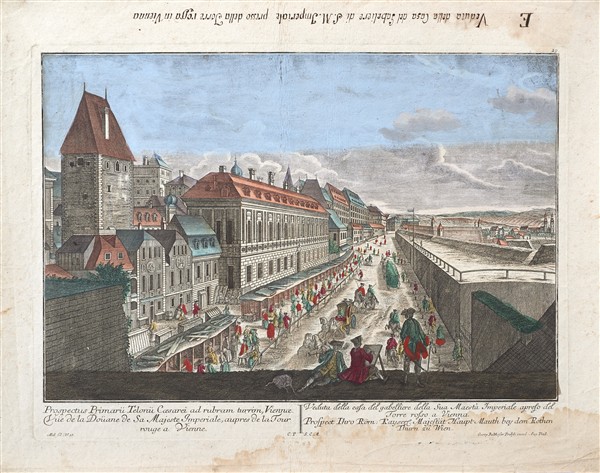 E
Veduta della Casa del Gabeliere di S. M. Imperiale presso della Torre rossa in Vienna
Prospectus Primarii Telonii Cæsarei ad rubram turrim, Viennæ.
Vuë de la Douane de Sa Majeste Imperiale, aupres de la Tour
rouge a Vienne.
Veduta della casa del gabelliere della Sua Maestà Imperiale apreso del
Torre rosso a Vienna.
Prospect Ihro Röm. Kayserl. Majestät Haupt Mauth bey dem Rothen
Thurn zu Wien.
Med. Fol. No. 36